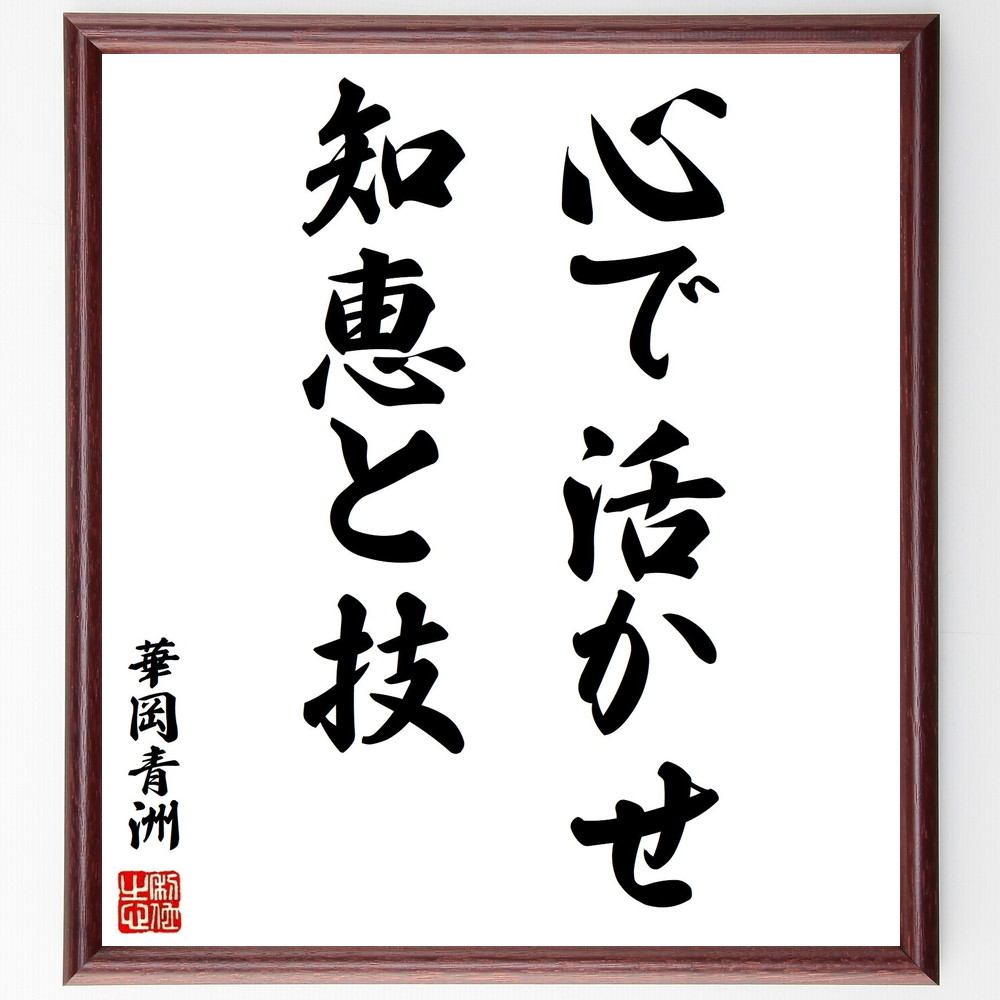 心で活かせ
知恵と技
華岡青洲